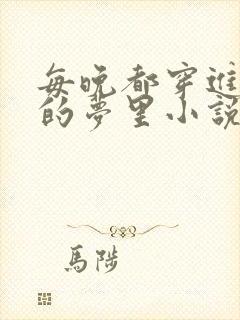 每晚都穿進
的夢里小說
馬陟